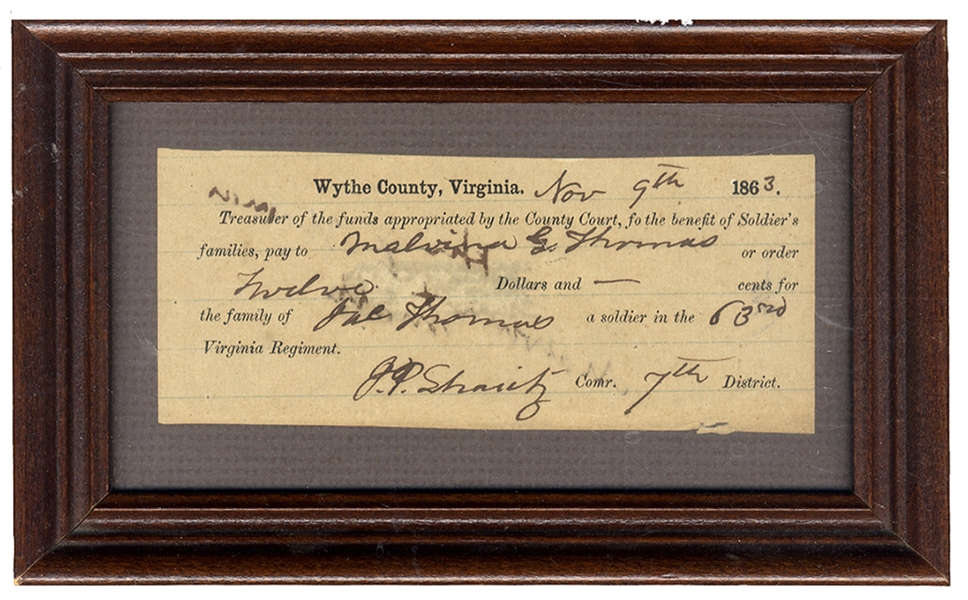 Wythe County, Virginia. Nov 9th 1863.
Treasurer of the funds appropriated by the County Court, fo the benefit of Soldier's
families, pay to Malvina G. Thomas or order
Twelve Dollars and — cents for
the family of Jac Thomas a soldier in the 63rd
Virginia Regiment.
J. P. Comr. 7th District.